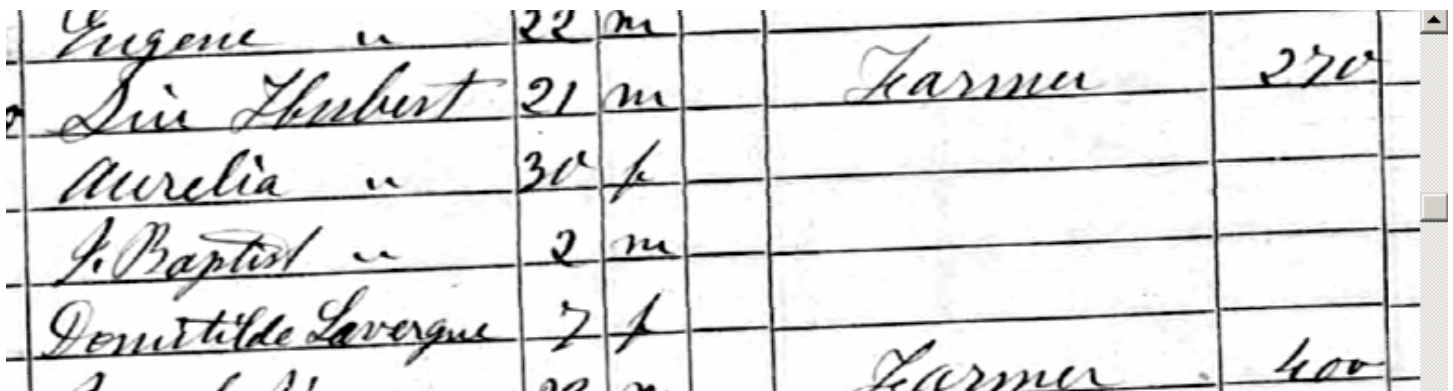 Eugene " 22 m
Hubert 21 m Farmer 270
Aurelia " 30 f
J. Baptist " 2 m
Domitilde Lavergne 7 f
Farmer 400